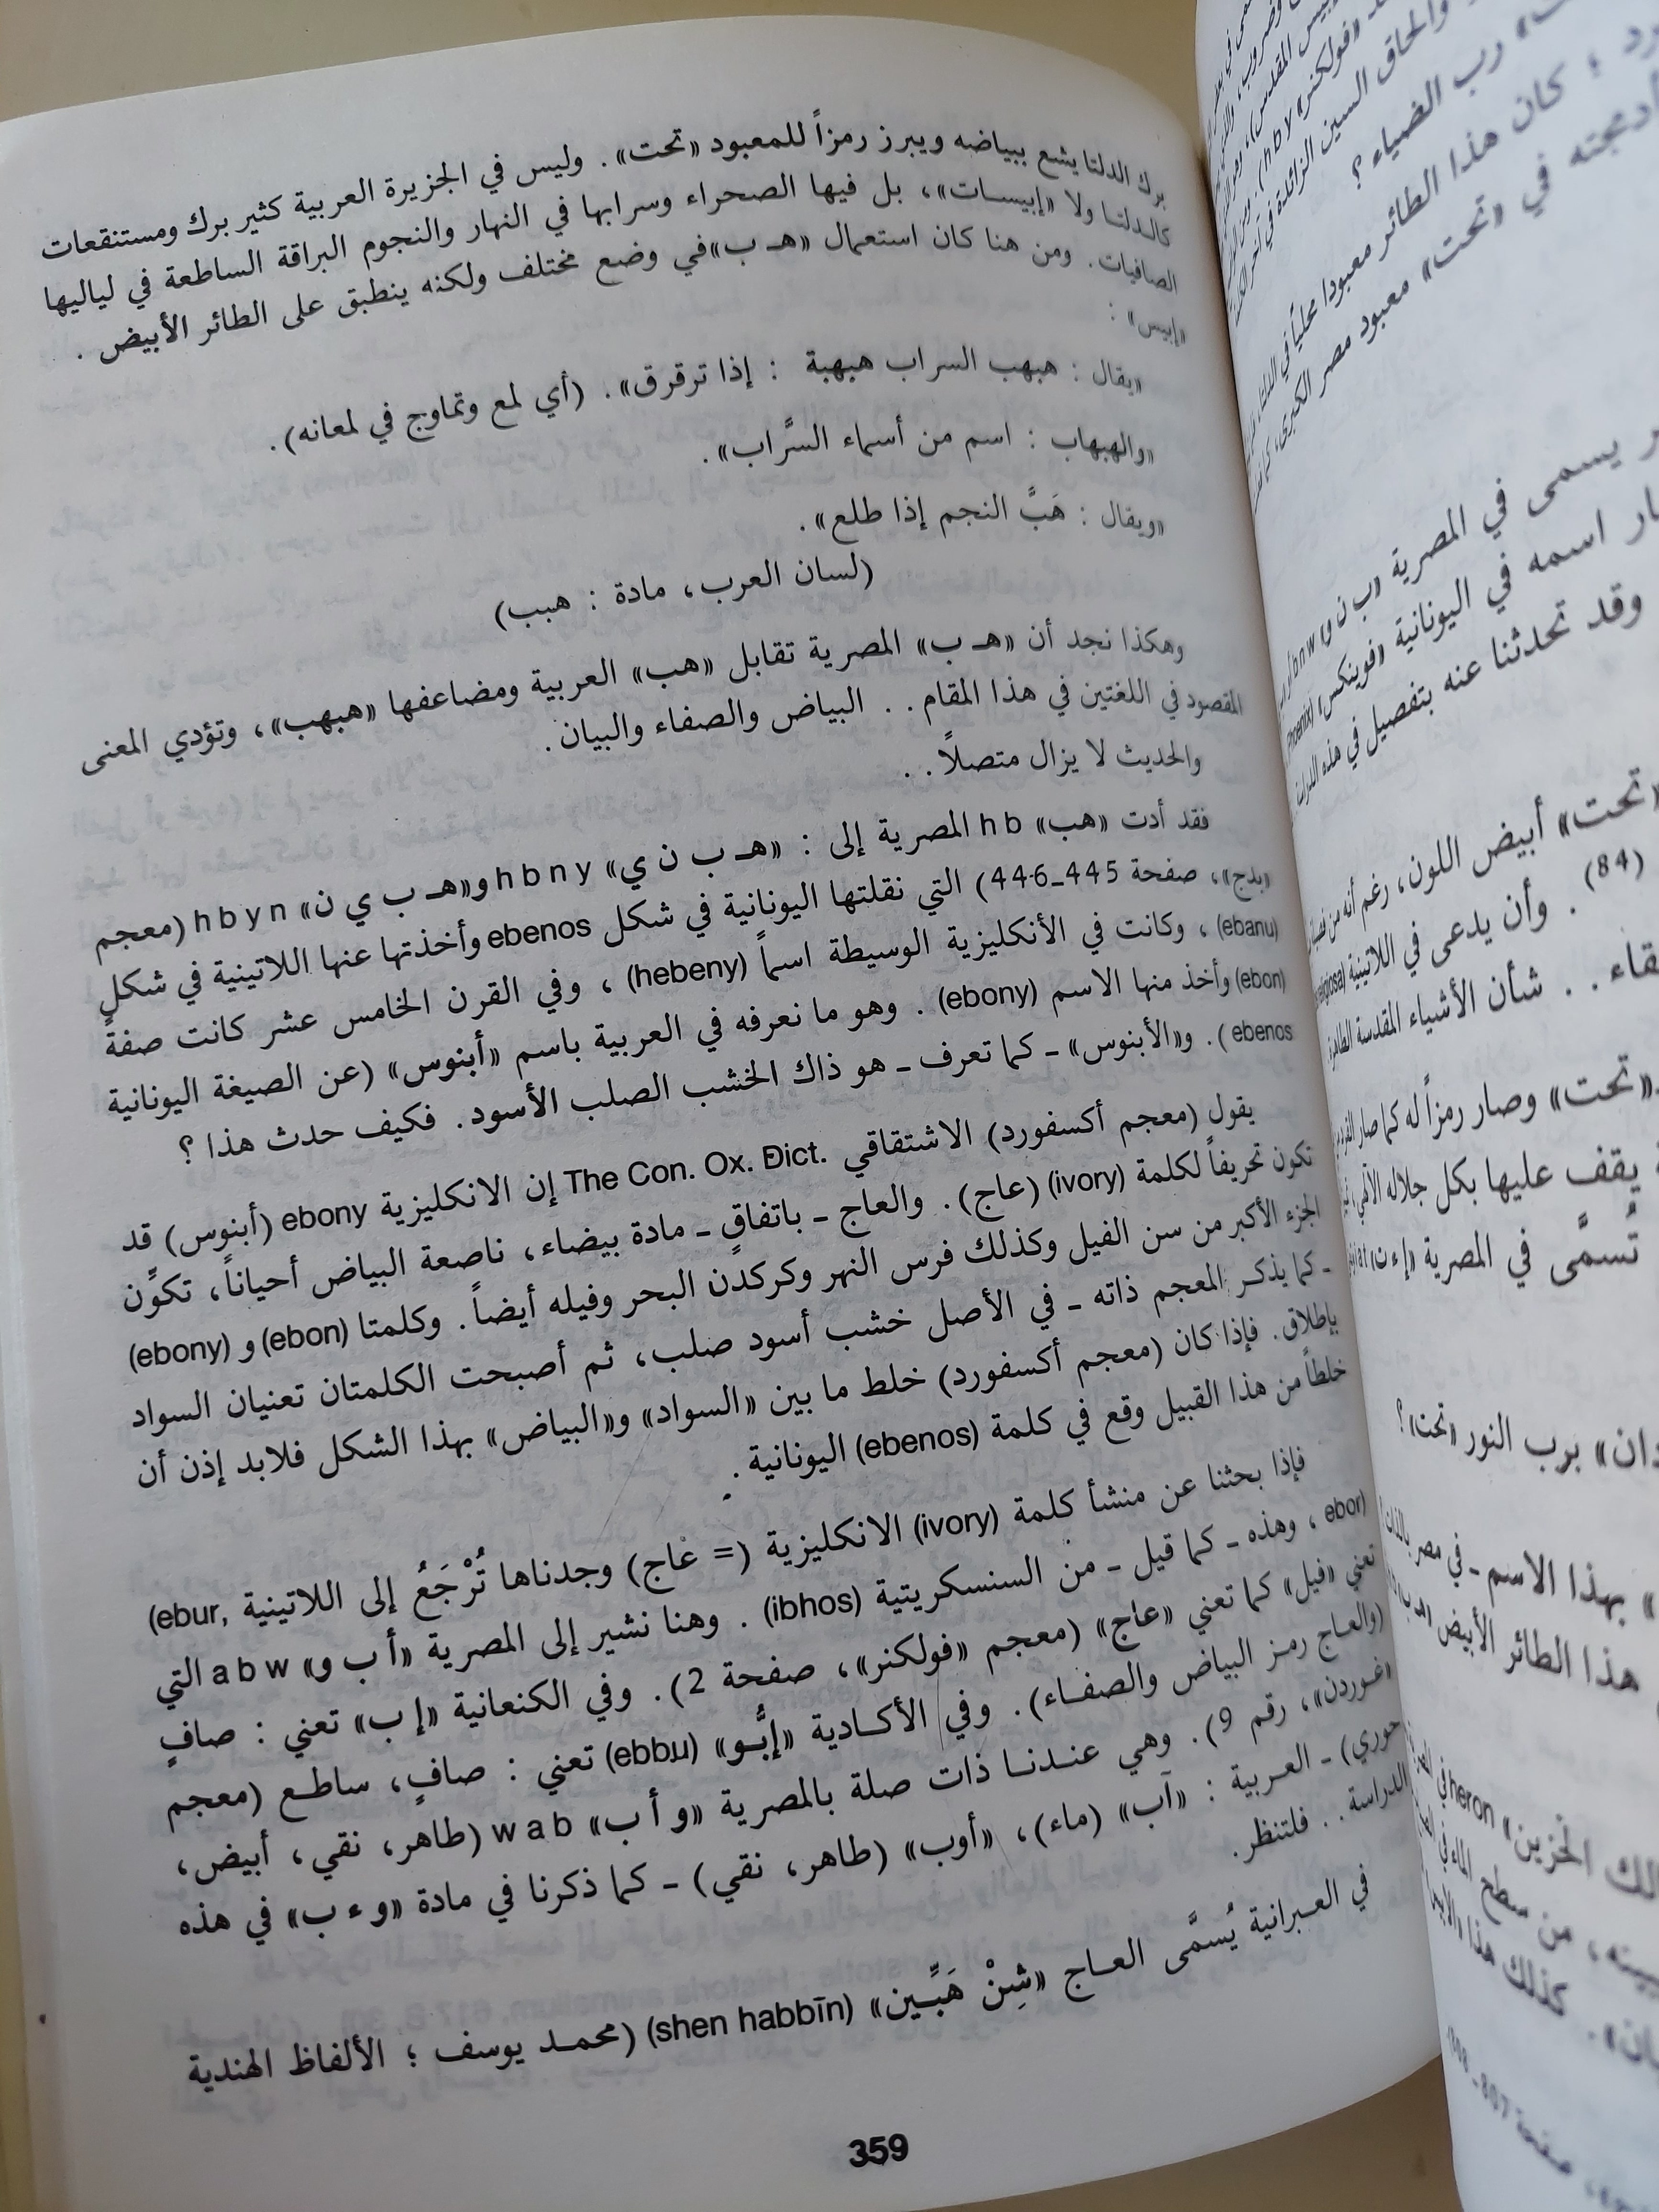 برك الدلتا يشع ببياضه ويبرز رمزاً للمعبود «تحت». وليس في الجزيرة العربية كثير برك ومستنقعات
كالدلتا ولا «إبيسات»، بل فيها الصحراء وسرابها في النهار والنجوم البراقة الساطعة في لياليها
الصافيات. ومن هنا كان استعمال «هـ ب» في وضع مختلف ولكنه ينطبق على الطائر الأبيض.
«إبيس» :
«يقال : هبهب السراب هبهبة : إذا ترقرق». (أي لمع وتماوج في لمعانه).
«والهبهاب : اسم من أسماء السَّراب».
«ويقال : هَبَّ النجم إذا طلع».
(لسان العرب، مادة : هبب)
وهكذا نجد أن «هـ ب» المصرية تقابل «هب» العربية ومضاعفها «هبهب»، وتؤدي المعنى
المقصود في اللغتين في هذا المقام . . البياض والصفاء والبيان.
والحديث لا يزال متصلاً . .
فقد أدت «هب» h b المصرية إلى : «هـ ب ن ي» h b n y و«هـ ب ي ن» h b y n (معجم
«بدج»، صفحة 445_446) التي نقلتها اليونانية في شكل ebenos وأخذتها عنها اللاتينية في شكل
(ebanu) ، وكانت في الأنكليزية الوسيطة اسماً (hebeny) ، وفي القرن الخامس عشر كانت صفةً
(ebon) وأخذ منها الاسم (ebony) . وهو ما نعرفه في العربية باسم «أبنوس» (عن الصيغة اليونانية
ebenos ). و«الأبنوس» ـ كما تعرف ـ هو ذاك الخشب الصلب الأسود. فكيف حدث هذا ؟
يقول (معجم أكسفورد) الاشتقاقي The Con. Ox. Đict. إن الانكليزية ebony (أبنوس) قد
تكون تحريفاً لكلمة (ivory) (عاج). والعاج ـ باتفاقٍ ـ مادة بيضاء، ناصعة البياض أحياناً، تكوِّن
الجزء الأكبر من سن الفيل وكذلك فرس النهر وكركدن البحر وفيله أيضاً. وكلمتا (ebon) و (ebony)
ـ كما يذكر المعجم ذاته ـ في الأصل خشب أسود صلب، ثم أصبحت الكلمتان تعنيان السواد
بإطلاق. فإذا كان (معجم أكسفورد) خلط ما بين «السواد» و«البياض» بهذا الشكل فلابد إذن أن
خلطاً من هذا القبيل وقع في كلمة (ebenos) اليونانية.
فإذا بحثنا عن منشأ كلمة (ivory) الانكليزية (= عاج) وجدناها تُرْجَعُ إلى اللاتينية (ebur,
ebor) ، وهذه ـ كما قيل ـ من السنسكريتية (ibhos) . وهنا نشير إلى المصرية «أ ب و» a b w التي
تعني «فيل» كما تعني «عاج» (معجم «فولكنر»، صفحة 2). وفي الكنعانية «إ ب» تعني : صافٍ
(والعاج رمز البياض والصفاء). وفي الأكادية «إبُّو» (ebbu) تعني : صافٍ، ساطع (معجم
«غوردن»، رقم 9). وهي عندنا ذات صلة بالمصرية «و أ ب» w a b (طاهر، نقي، أبيض،
حوري) ـ العربية : «آب» (ماء)، «أوب» (طاهر، نقي) ـ كما ذكرنا في مادة «و ء ب» في هذه
الدراسة . . فلتنظر.
في العبرانية يُسمَّى العاج «شِنْ هَبِّين» (shen habbīn) (محمد يوسف ؛ الألفاظ الهندية
359
رب الضياء ؟
كان هذا الطائر معبودا محلياً في الدلتا
«تحت» معبود مصر الكبرى
يسمى في المصرية «ب ن و» b n w
اسمه في اليونانية «فوينكس» (Phoenix)
وقد تحدثنا عنه بتفصيل في هذه
«تحت» أبيض اللون، رغم أنه من
(84) . وأن يدعى في اللاتينية
شأن الأشياء المقدسة الطاهرة
«تحت» وصار رمزاً له كما صار
يقف عليها بكل جلاله
تُسمَّى في المصرية «إ ء ت»
برب النور «تحت» ؟
بهذا الاسم ـ في مصر بالذات
هذا الطائر الأبيض
الحزين» heron
من سطح الماء في
كذلك هذا
صفحة 807_808